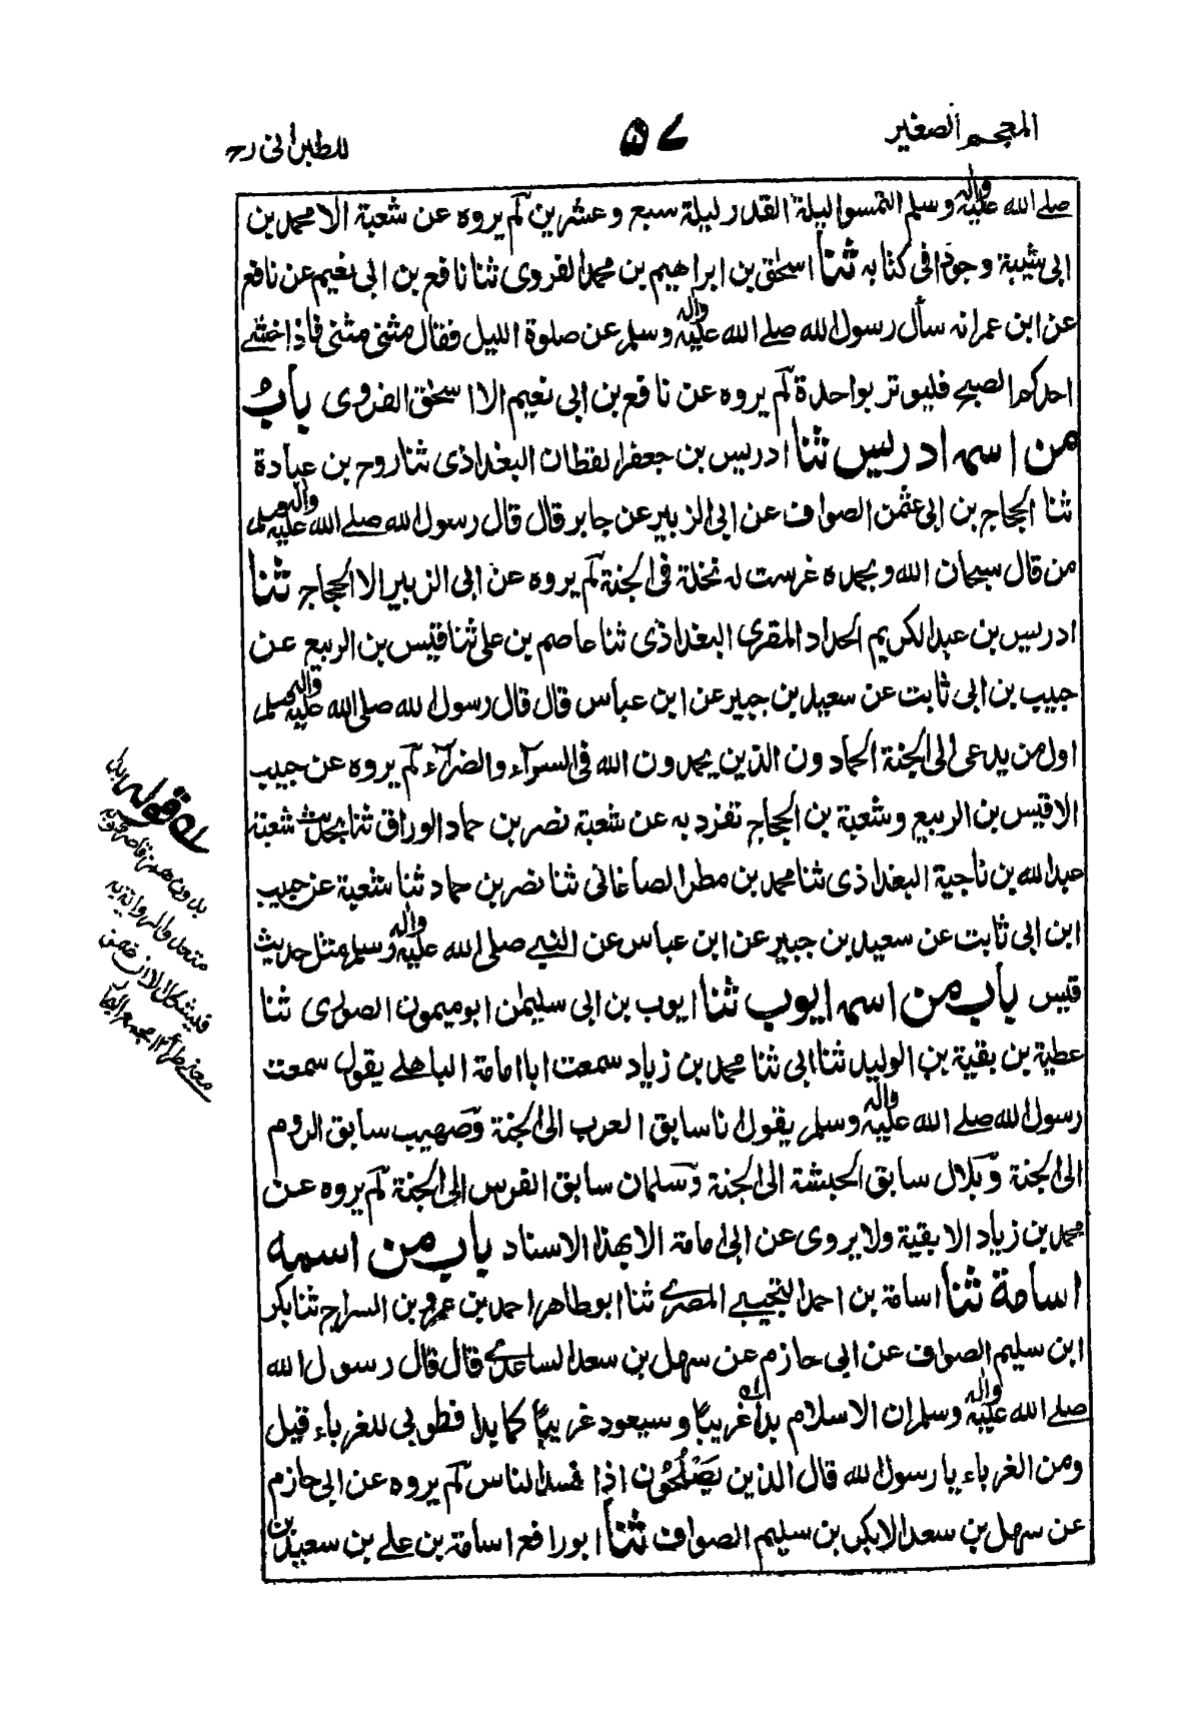 المعجم الصغير
۵۷
للطبرانی رح
صلے الله علیه واله وسلم التمسوا لیلة القدر لیلة سبع وعشرین لم یروه عن شعبة الا محمد بن
ابی شیبة وجودا فی کتابه ثنا اسحٰق بن ابراهیم بن محمد الفروی ثنا نافع بن ابی نعیم عن نافع
عن ابن عمر انه سأل رسول الله صلے الله علیه واله وسلم عن صلوة اللیل فقال مثنی مثنی فاذا خشے
احدکم الصبح فلیوتر بواحدة لم یروه عن نافع بن ابی نعیم الا اسحٰق الفروی باب
من اسمه ادریس ثنا ادریس بن جعفر القطان البغداذی ثنا روح بن عبادة
ثنا الحجاج بن ابی عثمن الصواف عن ابی الزبیر عن جابر قال قال رسول الله صلے الله علیه واله وسلم
من قال سبحان الله وبحمده غرست له نخلة فی الجنة لم یروه عن ابی الزبیر الا الحجاج ثنا
ادریس بن عبد الکریم الحداد المقری البغداذی ثنا عاصم بن علی ثنا قیس بن الربیع عن
حبیب بن ابی ثابت عن سعید بن جبیر عن ابن عباس قال قال رسول الله صلی الله علیه واله وسلم
اول من یدعی الی الجنة الحمادون الذین یحمدون الله فی السرآء والضرآء لم یروه عن حبیب
الا قیس بن الربیع وشعبة بن الحجاج تفرد به عن شعبة نصر بن حماد الوراق ثنا بحدیث شعبة
عبد الله بن ناجیة البغداذی ثنا محمد بن مطر الصاغانی ثنا نصر بن حماد ثنا شعبة عن حبیب
ابن ابی ثابت عن سعید بن جبیر عن ابن عباس عن النبے صلی الله علیه واله وسلم مثل حدیث
قیس باب من اسمه ایوب ثنا ایوب بن ابی سلیمٰن ابو میمون الصوری ثنا
عطیة بن بقیة بن الولید ثنا ابی ثنا محمد بن زیاد سمعت ابا امامة الباهلے یقول سمعت
رسول الله صلے الله علیه واله وسلم یقول انا سابق العرب الی الجنة وصهیب سابق الروم
الی الجنة وبلال سابق الحبشة الی الجنة وسلمان سابق الفرس الی الجنة لم یروه عن
محمد بن زیاد الا بقیة ولا یروی عن ابی امامة الا بهذا الاسناد باب من اسمه
اسامة ثنا اسامة بن احمد التجیبے المصرے ثنا ابو طاهر احمد بن عمرو بن السراج ثنا بکر
ابن سلیم الصواف عن ابی حازم عن سهل بن سعد الساعدے قال قال رسول الله
صلے الله علیه واله وسلم ان الاسلام بدأ غریبًا وسیعود غریبًا کما بدا فطوبی للغرباء قیل
ومن الغرباء یا رسول الله قال الذین یَصْلُحُون اذا فسد الناس لم یروه عن ابی حازم
عن سهل بن سعد الا بکر بن سلیم الصواف ثنا ابو رافع اسامة بن علے بن سعید بن
له قوله بدأ
بدون همز
متعد والروایة به
فیشکل الا ان ضمن
معنی طرأ ۱۲ مجمع البحار